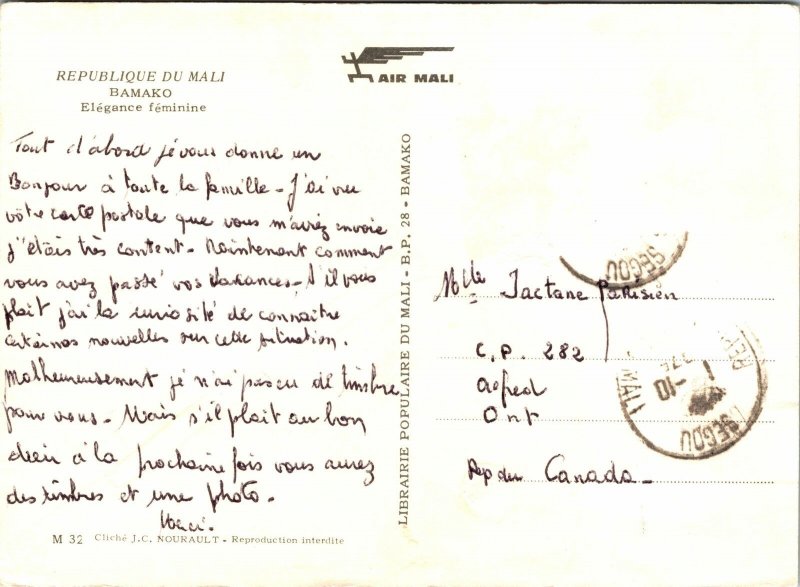 REPUBLIQUE DU MALI
BAMAKO
Elégance féminine
AIR MALI
Tout d'abord je vous donne un
Bonjour à toute la famille - J'ai vu
vôtre carte postale que vous m'aviez envoie
j'étais très content - Maintenant comment
vous avez passé vos vacances - S'il vous
plait j'ai la curiosité de connaitre
certaines nouvelles sur cette situation.
Malheureusement je n'ai pas eu de timbre
pour vous - Mais s'il plait au bon
dieu à la prochaine fois vous aurez
des timbres et une photo.
Merci.
M 32 Cliché J.C. NOURAULT - Reproduction interdite
LIBRAIRIE POPULAIRE DU MALI - B.P. 28 - BAMAKO
Mlle Jactane Parisien
C.P. 282
Alfred
Ont
Rep du Canada -
SEGOU
1 -10
SEGOU
MALI